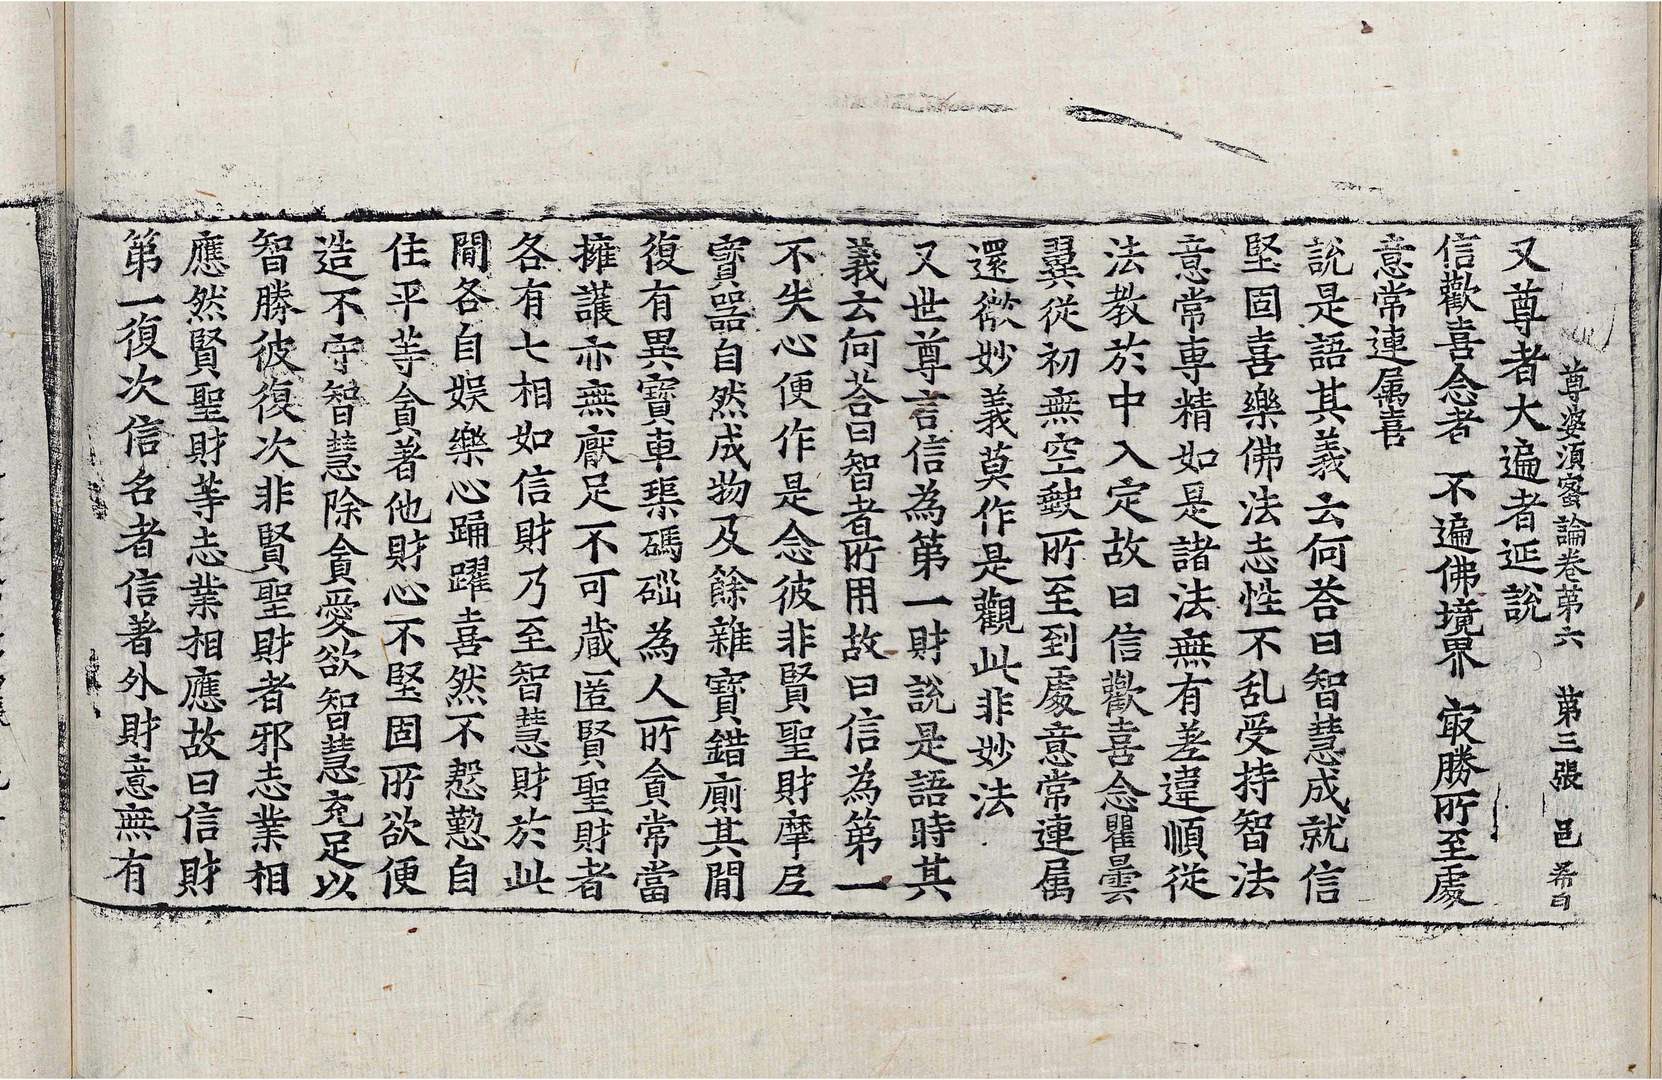 尊婆湏蜜論卷苐六　苐三張　邑　希日
又尊者大遍者延說
信歡喜念者　不遍佛境界　㝡勝所至處
意常連属喜
說是語其義云何荅曰智慧成就信
堅固喜樂佛法志性不乱受持智法
意常専精如是諸法無有差違順従
法教於中入定故曰信歡喜念瞿曇
翼從初無空缺所至到處意常連属
還微妙義莫作是觀此非妙法
又世尊言信為第一財說是語時其
義云何荅曰智者所用故曰信為第一
不失心便作是念彼非賢聖財摩尼
寳器自然成物及餘雜寳錯廁其間
復有異寳車璖碼碯為人所貪常當
擁護亦無厭足不可蔵匿賢聖財者
各有七相如信財乃至智慧財於此
間各自娱樂心踊躍喜然不慇懃自
住平等貪著他財心不堅固所欲便
造不守智慧除貪愛欲智慧充足以
智勝彼復次非賢聖財者邪志業相
應然賢聖財等志業相應故曰信財
第一復次信名者信著外財意無有